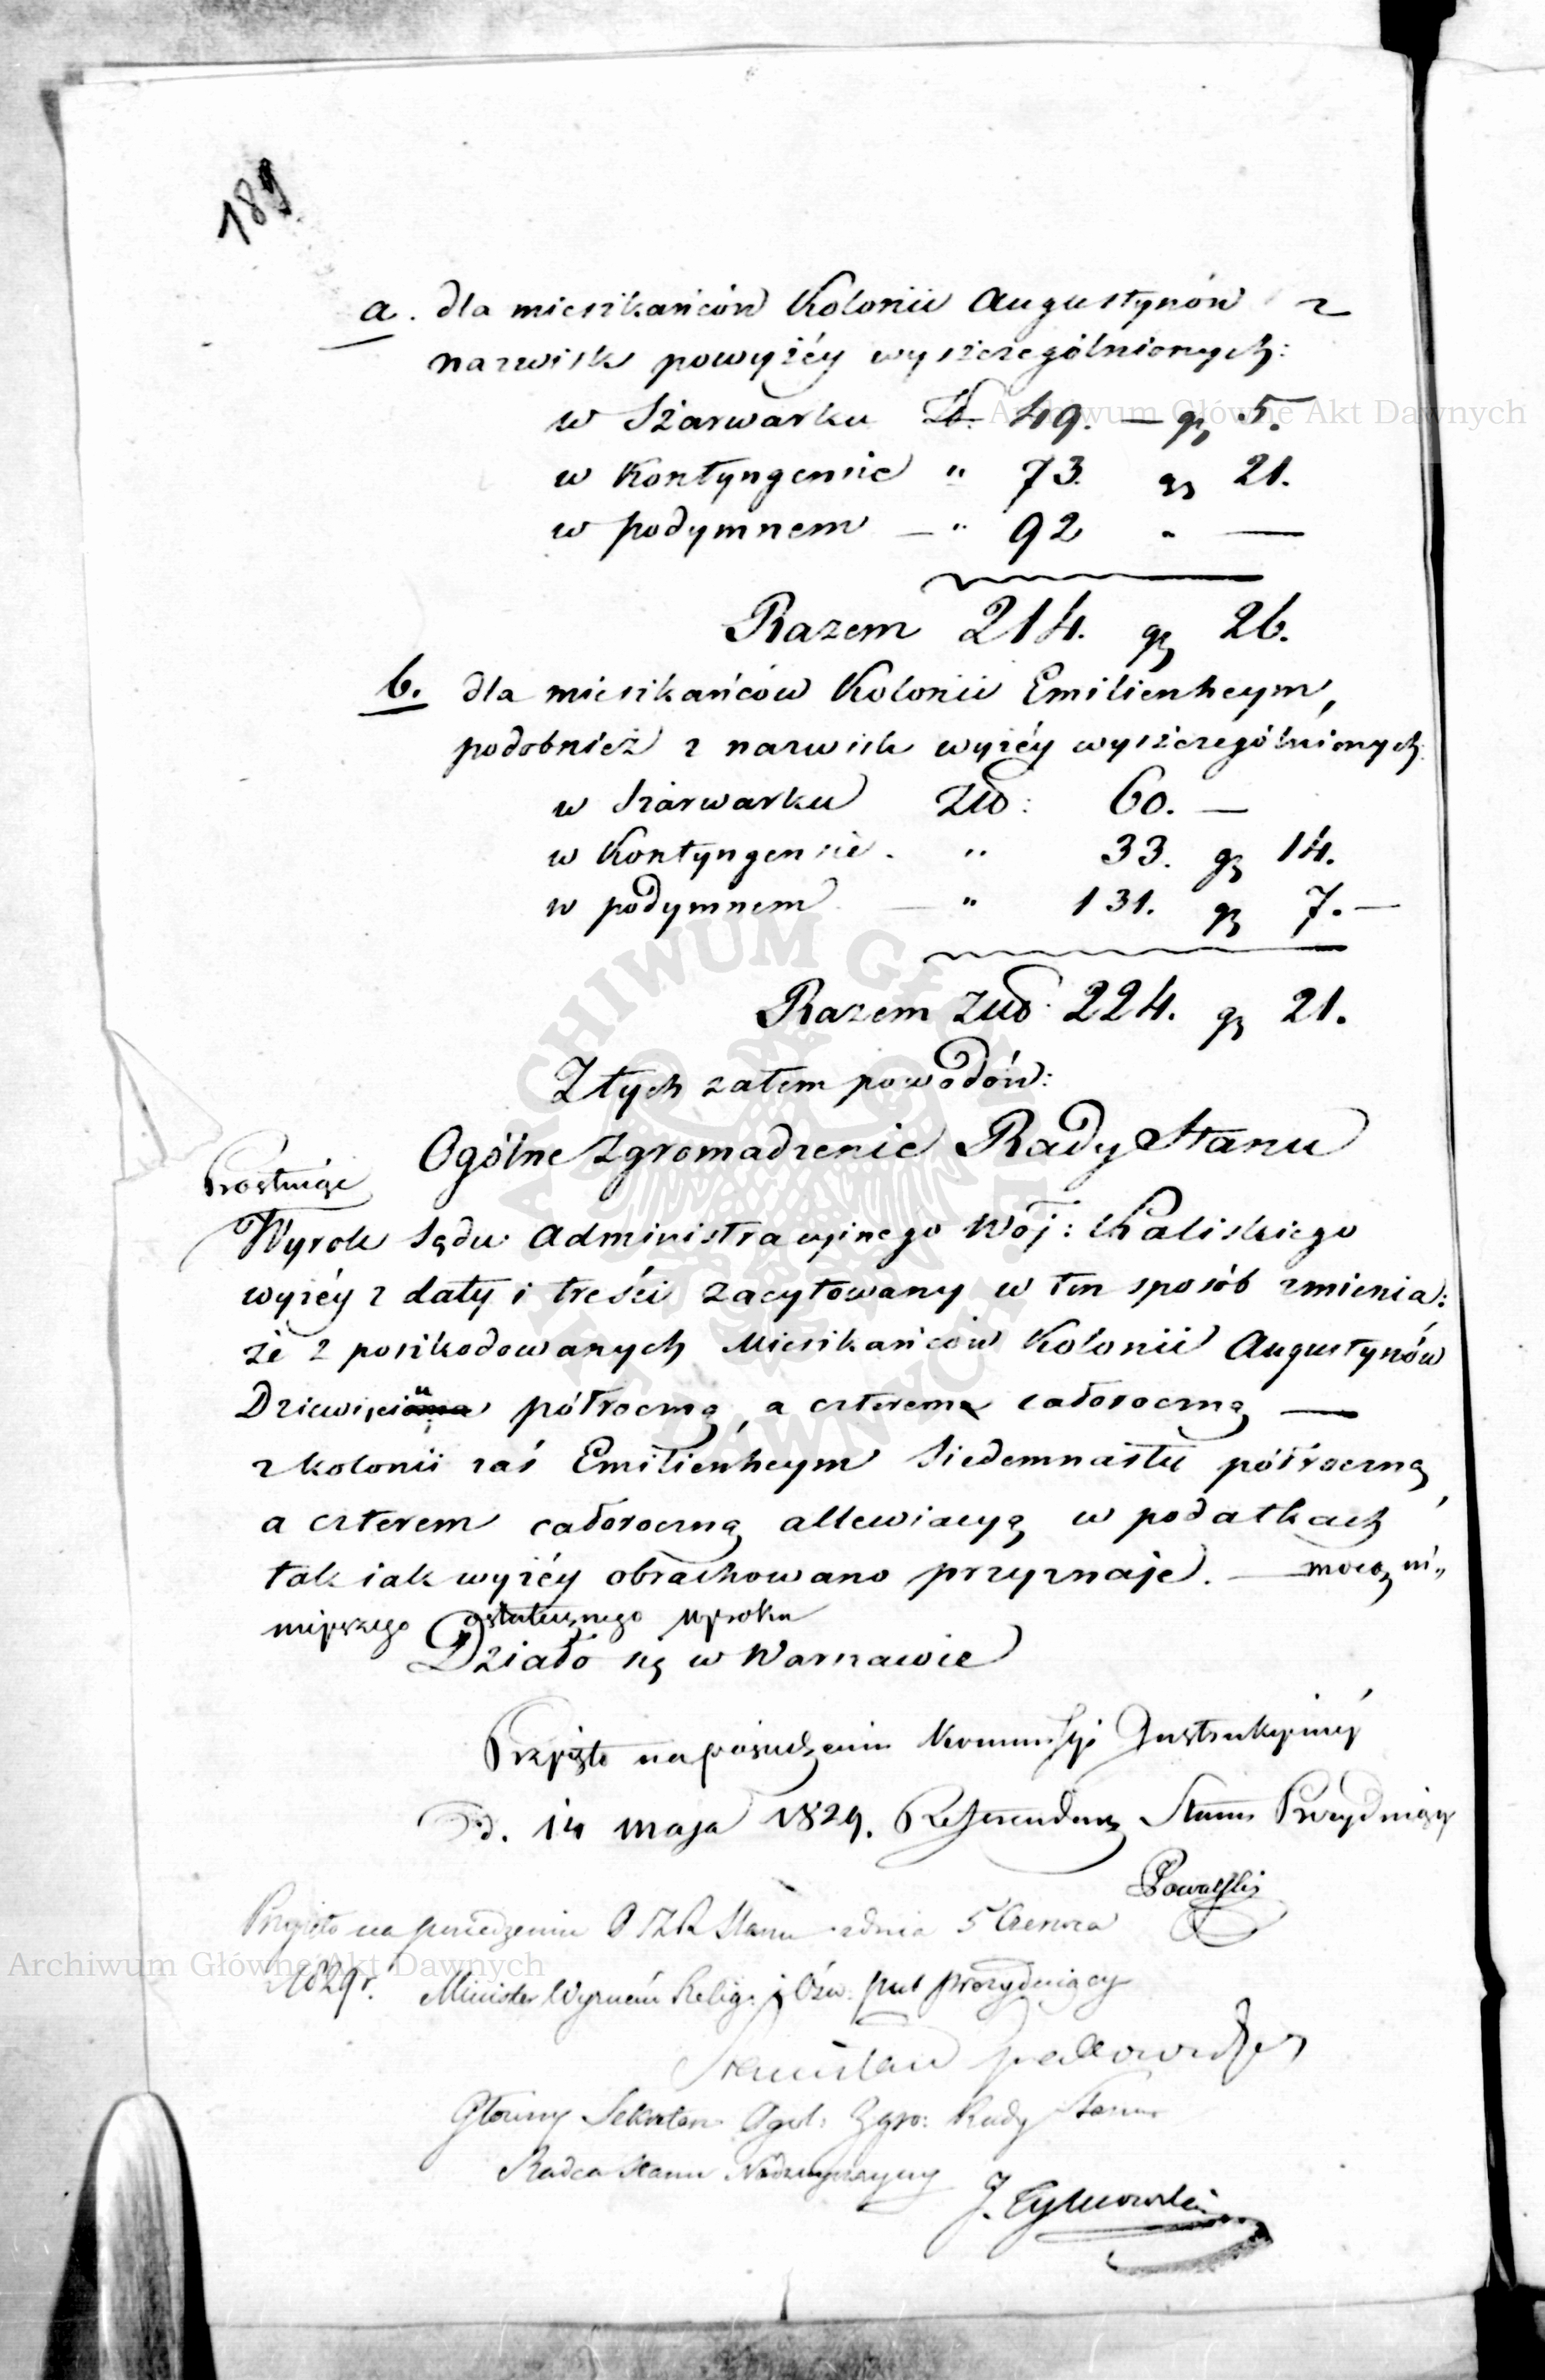 189
a. dla mieszkańców Kolonii Augustynów z
nazwisk powyżéy wyszczególnionych:
w Szarwarku Zł. 49. — gr 5.
w Kontyngensie " 73. gr 21.
w podymnem — " 92 " —
Razem 214. gr 26.
b. dla mieszkańców Kolonii Emilienheym,
podobnież z nazwisk wyżéy wyszczególnionych
w Szarwarku Złł: 60. —
w Kontyngensie. " 33. gr 14.
w podymnem — " 131. gr 7. —
Razem Złł. 224. gr 21.
Z tych zatem powodów:
Ogólne Zgromadzenie Rady Stanu
Wyrok Sądu Administracyinego Woj: Kaliskiego
wyżéy z daty i treści zacytowany w ten sposób zmienia:
że z poszkodowanych Mieszkańców Kolonii Augustynów
Dziewięciu półroczną, a czterem całoroczną —
z kolonii zaś Emilienheym Siedemnastu półroczną,
a czterem całoroczną allewiacyą w podatkach
tak iak wyżéy obrachowano przyznaje. — mocą ni„
nieyszego ostatecznego wyroku
Działo się w Warszawie
Przyięto na posiedzeniu Kommissyi Instrukcyinéy
D. 14 maja 1829. Referendarz Stanu Prezyduiący
Przyięto na posiedzeniu O Z R Stanu z dnia 5 Czerwca
1829 r. Minister Wyznań Relig: i Ośw: pub prezyduiący
Stanisław Grabowski
Główny Sekretarz Ogól: Zgro: Rady Stanu
Radca Stanu Nadzwyczayny
J. Tymowski
Archiwum Główne Akt Dawnych
Archiwum Główne Akt Dawnych
ARCHIWUM GŁÓWNE AKT DAWNYCH